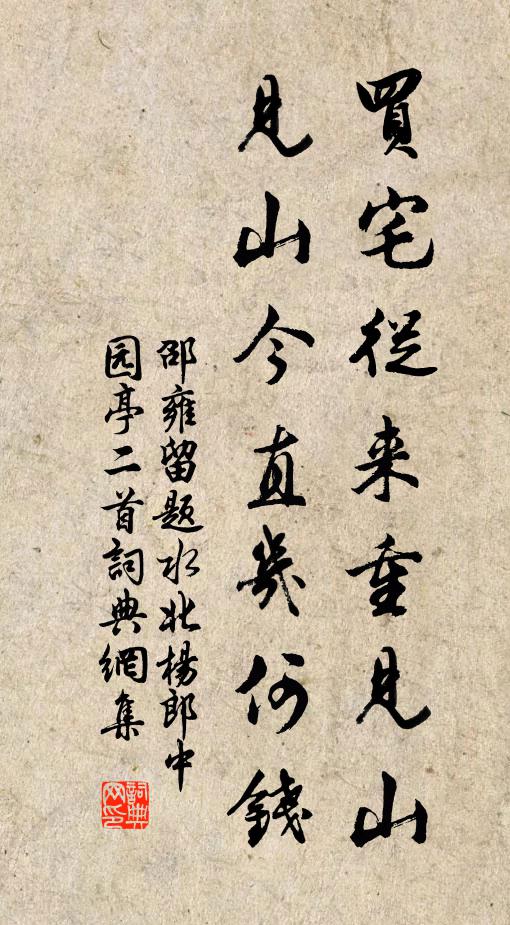 買宅從来重見山
見山今直幾何錢
邵雍留題水北楊郎中
园亭二首詞典網集
詞典
网印